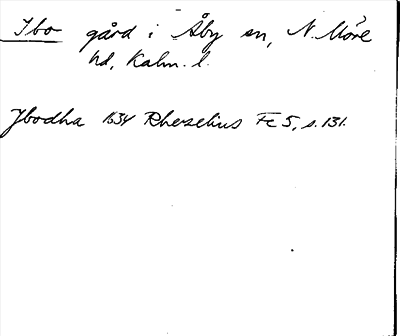 Ibo gård i Åby sn, N. Möre
hd, Kalm. l.
Jbodha 1634 Rhezelius Fc 5, s. 131.